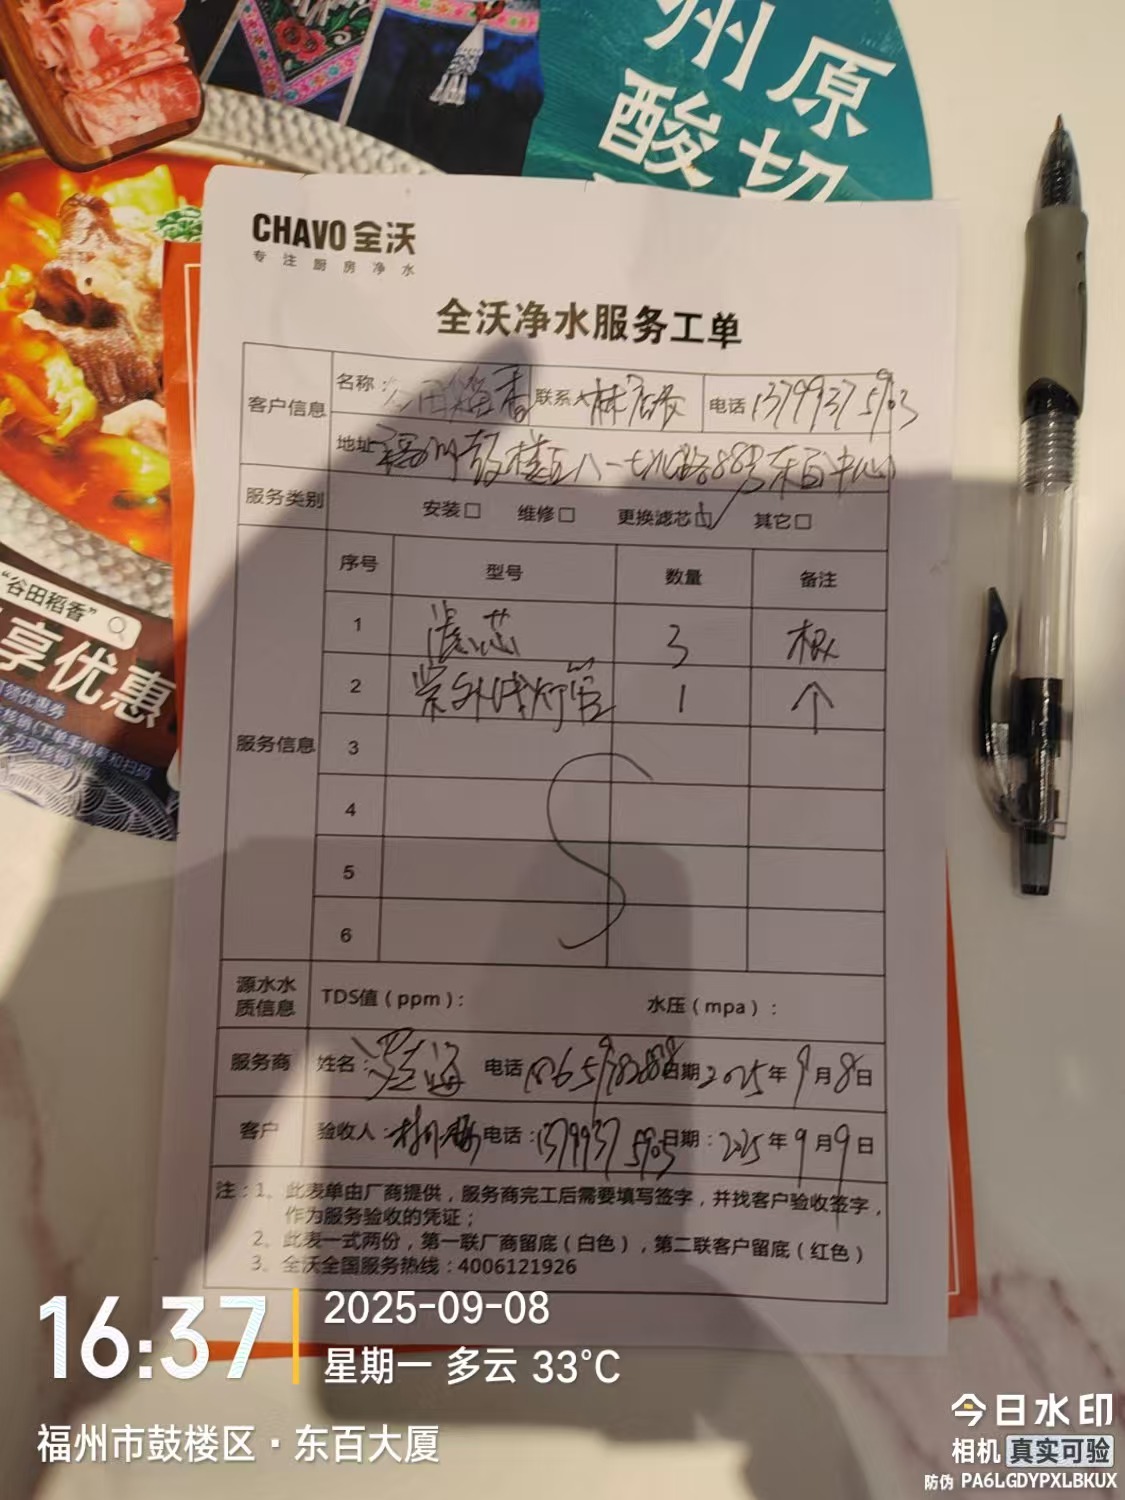 州原
酸切
CHAVO 全沃
专注厨房净水
全沃净水服务工单
客户信息 名称：谷田稻香 联系人 林店长 电话 13799375903
地址 福州鼓楼区八一七北路88号东百中心
服务类别 安装□ 维修□ 更换滤芯☑ 其它□
服务信息
序号 型号 数量 备注
1 滤芯 3 根
2 紫外线灯管 1 ↑
3
4
5
6
源水水质信息 TDS值（ppm）： 水压（mpa）：
服务商 姓名： 电话 日期 2025年9月8日
客户 验收人： 电话：13799375903 日期：2025年9月9日
注：1、此表单由厂商提供，服务商完工后需要填写签字，并找客户验收签字，
作为服务验收的凭证；
2、此表一式两份，第一联厂商留底（白色），第二联客户留底（红色）
3、全沃全国服务热线：4006121926
“谷田稻香”
享优惠
领优惠券
16:37
2025-09-08
星期一 多云 33°C
福州市鼓楼区·东百大厦
今日水印
相机 真实可验
防伪 PA6LGDYPXLBKUX